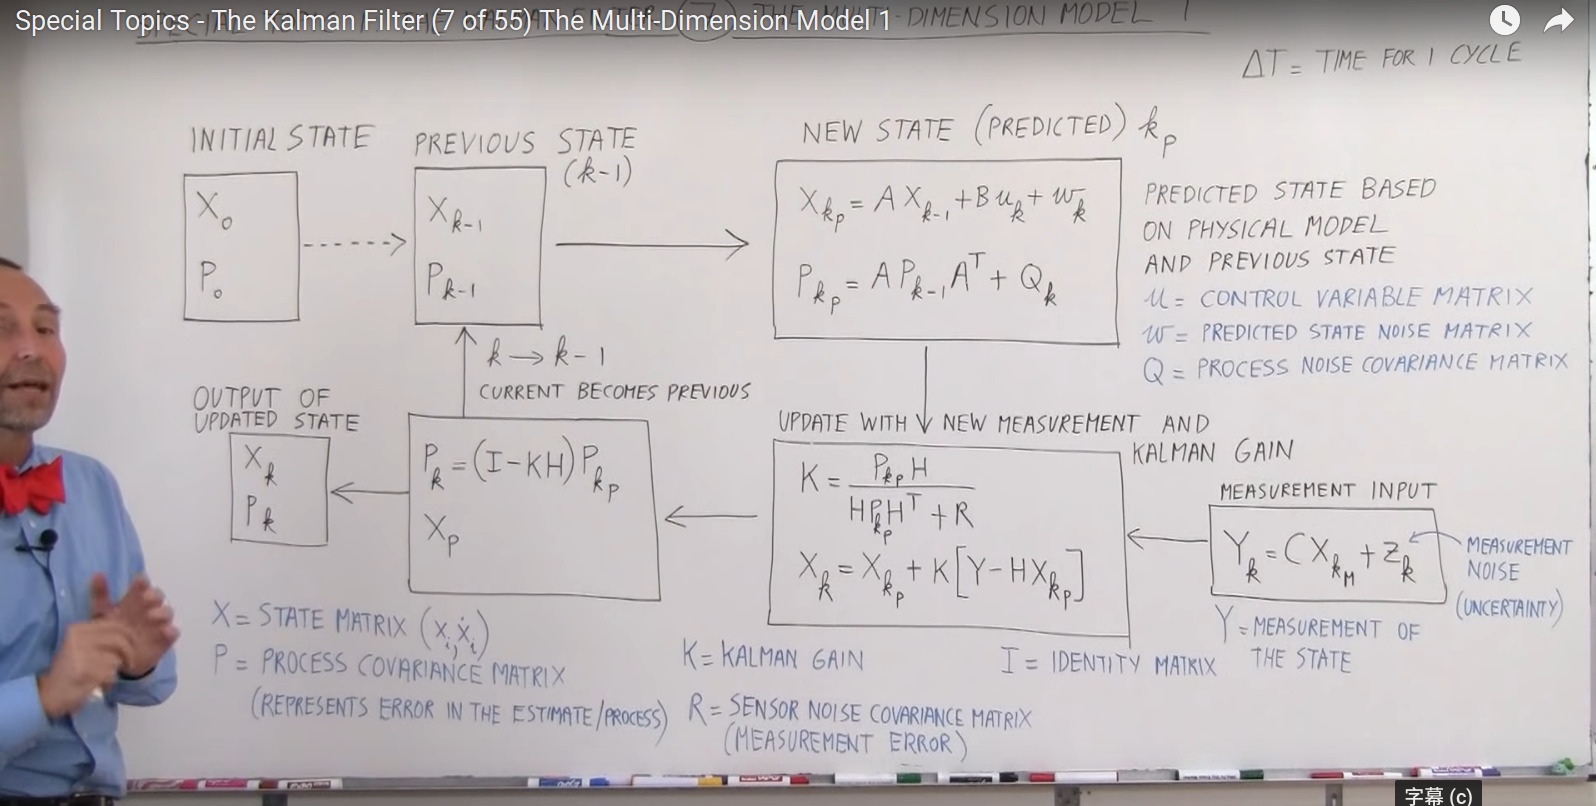 Special Topics - The Kalman Filter (7 of 55) The Multi-Dimension Model 1
ΔT = TIME FOR 1 CYCLE
INITIAL STATE
X₀
P₀
PREVIOUS STATE
(k-1)
X_{k-1}
P_{k-1}
NEW STATE (PREDICTED) k_p
X_{k_p} = A X_{k-1} + B u_k + w_k
P_{k_p} = A P_{k-1} A^T + Q_k
PREDICTED STATE BASED
ON PHYSICAL MODEL
AND PREVIOUS STATE
u = CONTROL VARIABLE MATRIX
w = PREDICTED STATE NOISE MATRIX
Q = PROCESS NOISE COVARIANCE MATRIX
k → k-1
CURRENT BECOMES PREVIOUS
OUTPUT OF
UPDATED STATE
X_k
P_k
P_k = (I-KH) P_{k_p}
X_p
UPDATE WITH NEW MEASUREMENT AND
KALMAN GAIN
K = P_{k_p} H / H P_{k_p} H^T + R
X_k = X_{k_p} + K[Y - H X_{k_p}]
MEASUREMENT INPUT
Y_k = C X_{k_M} + Z_k
MEASUREMENT
NOISE
(UNCERTAINTY)
Y = MEASUREMENT OF
THE STATE
X = STATE MATRIX (x_i, ẋ_i)
P = PROCESS COVARIANCE MATRIX
(REPRESENTS ERROR IN THE ESTIMATE/PROCESS)
K = KALMAN GAIN
I = IDENTITY MATRIX
R = SENSOR NOISE COVARIANCE MATRIX
(MEASUREMENT ERROR)
字幕 (c)